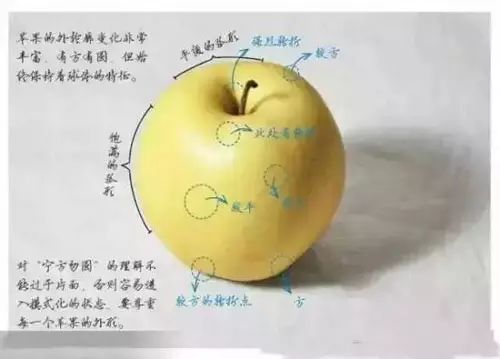 苹果的外轮廓变化非常
丰富，有方有圆，但始
终保持着球体的特征。
平缓的弧形
强烈转折
较方
饱满的弧形
此处有转折
较平
较方的转折点
方
对“宁方勿圆”的理解不
能过于片面，否则容易进
入模式化的状态，要尊重
每一个苹果的外形。